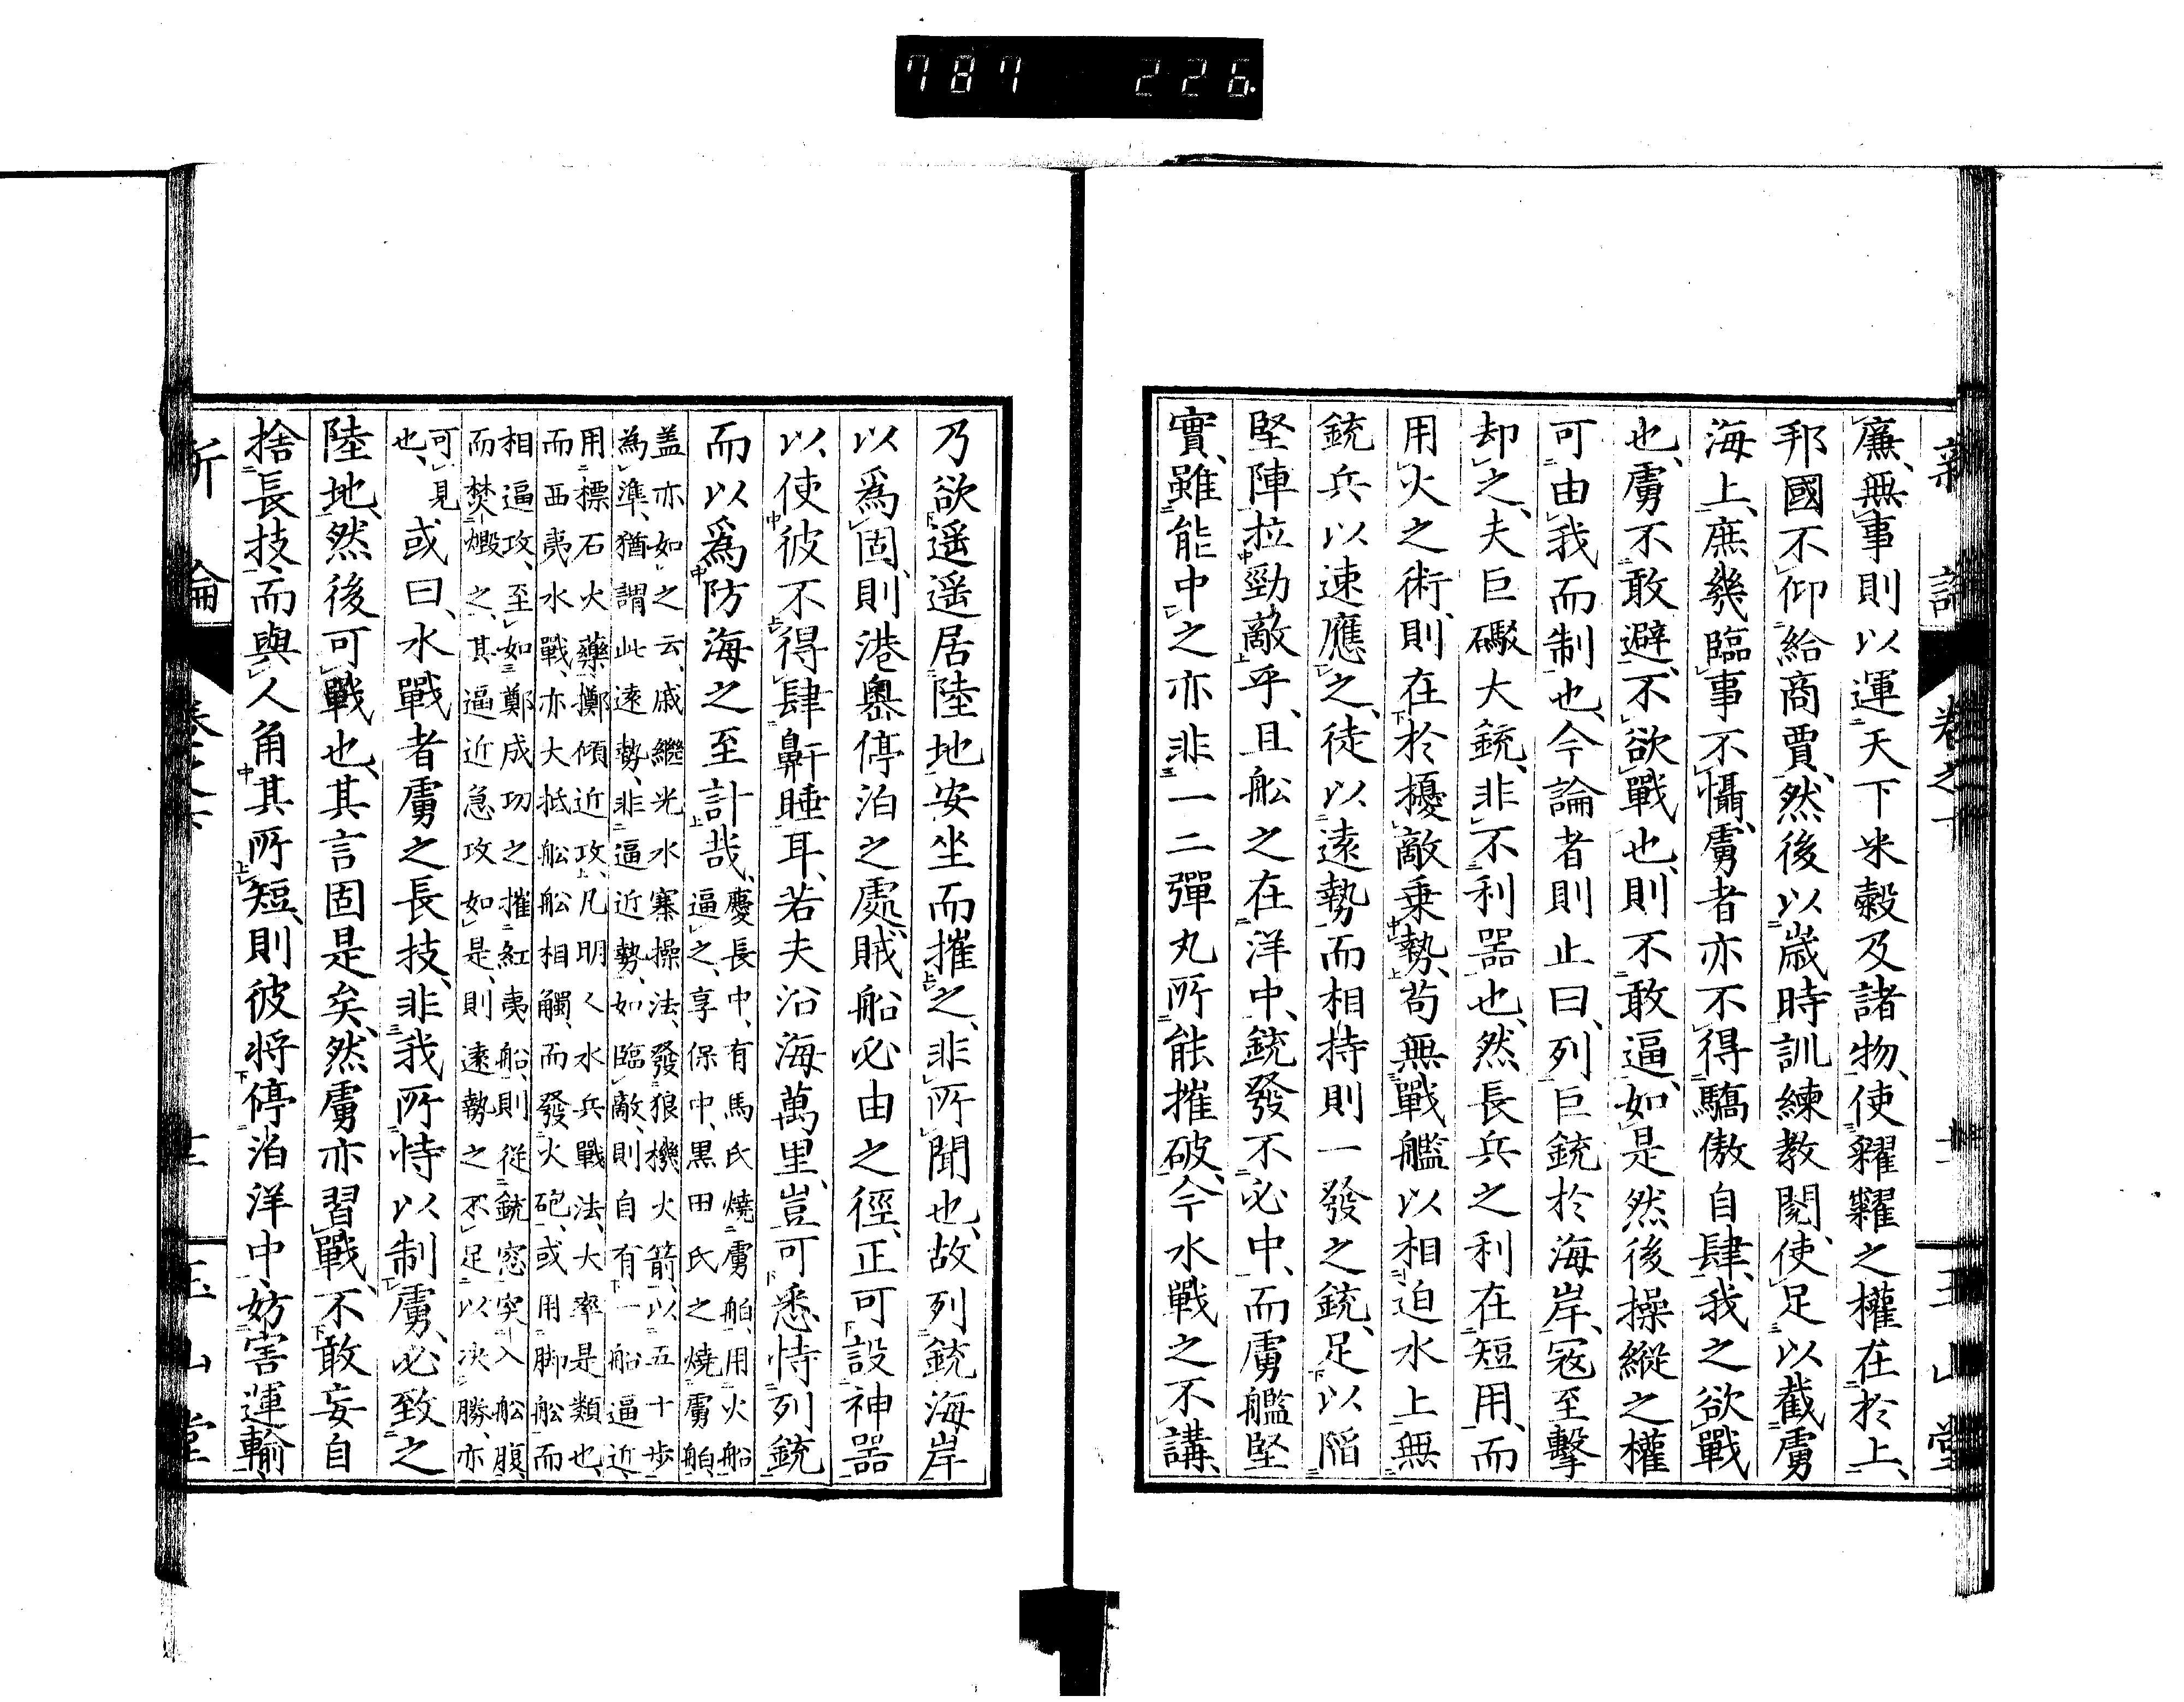 787 226
新論 卷之下 玉山堂
廉、無事則以運天下米穀及諸物、使糶糴之權在於上、
邦國不仰給商賈、然後以歲時訓練教閱、使足以截虜
海上、庶幾臨事不懾、虜者亦不得驕傲自肆、我之欲戰
也、虜不敢避、不欲戰也、則不敢逼、如是然後操縱之權
可由我而制也、今論者則止曰、列巨銃於海岸、寇至擊
却之、夫巨礮大銃、非不利器也、然長兵之利在短用、而
用火之術、則在於擾敵乗勢、苟無戰艦以相迫水上、無
銃兵以速應之、徒以遠勢而相持則一發之銃、足以陷
堅陣拉勁敵乎、且舩之在洋中、銃發不必中、而虜艦堅
實、雖能中之亦非一二彈丸所能摧破、今水戰之不講、
乃欲遥遥居陸地安坐而摧之、非所聞也、故列銃海岸
以爲固、則港奧停泊之處、賊船必由之徑、正可設神器
以使彼不得肆鼾睡耳、若夫沿海萬里、豈可悉恃列銃
而以爲防海之至計哉、
慶長中、有馬氏燒虜舶、用火船
逼之、享保中、黒田氏之燒虜舶、
盖亦如之云、戚繼光水寨操法、發狼機火箭、以五十步
為準、猶謂此遠勢、非逼近勢、如臨敵、則自有一船逼近、
用標石火藥、擲傾近攻、凡明人水兵戰法、大率是類也、
而西夷水戰、亦大抵舩舩相觸、而發火砲、或用脚舩而
相逼攻、至如鄭成功之摧紅夷船、則從銃窓突入舩腹、
而焚燬之、其逼近急攻如是、則遠勢之不足以决勝、亦
可見
也、
或曰、水戰者虜之長技、非我所恃以制虜、必致之
陸地、然後可戰也、其言固是矣、然虜亦習戰、不敢妄自
捨長技、而與人角其所短、則彼將停泊洋中、妨害運輸、
新論 卷之下 玉山堂